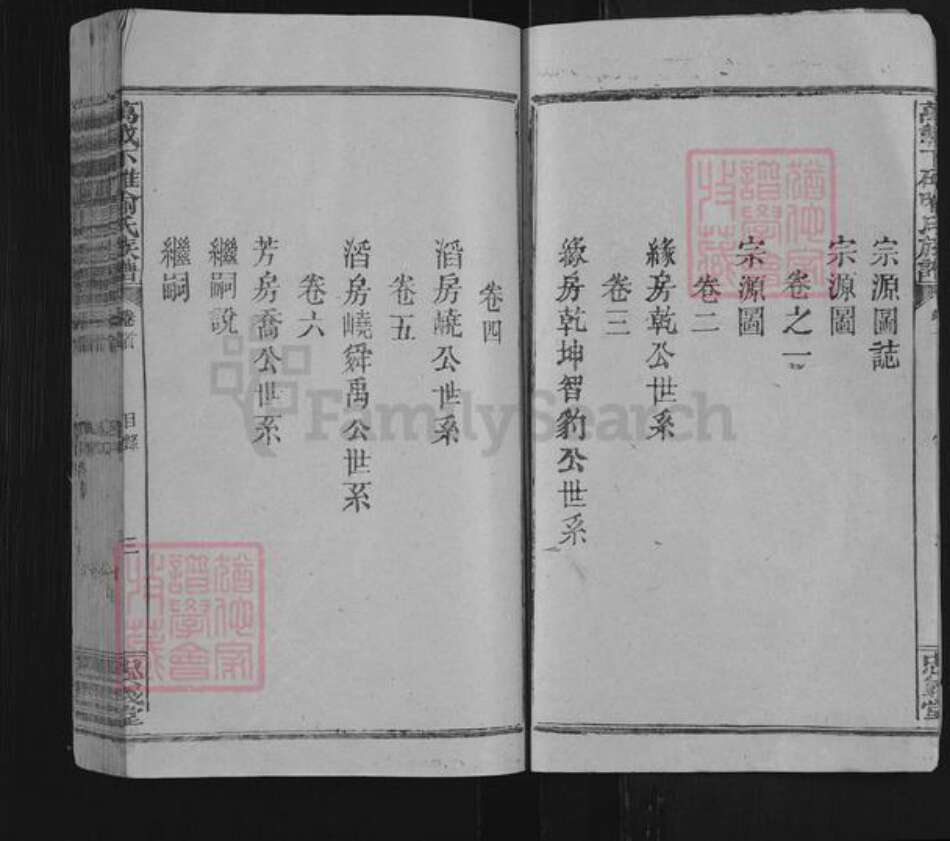 宗源圖誌
宗源圖
卷之一
宗源圖
卷二
緣房乾公世系
卷三
緣房乾坤智豹公世系
卷四
滔房蟯公世系
卷五
滔房嶢舜禹公世系
卷六
芳房喬公世系
繼嗣說
繼嗣
氏族譜
卷首
目錄
三
堂
FamilySearch